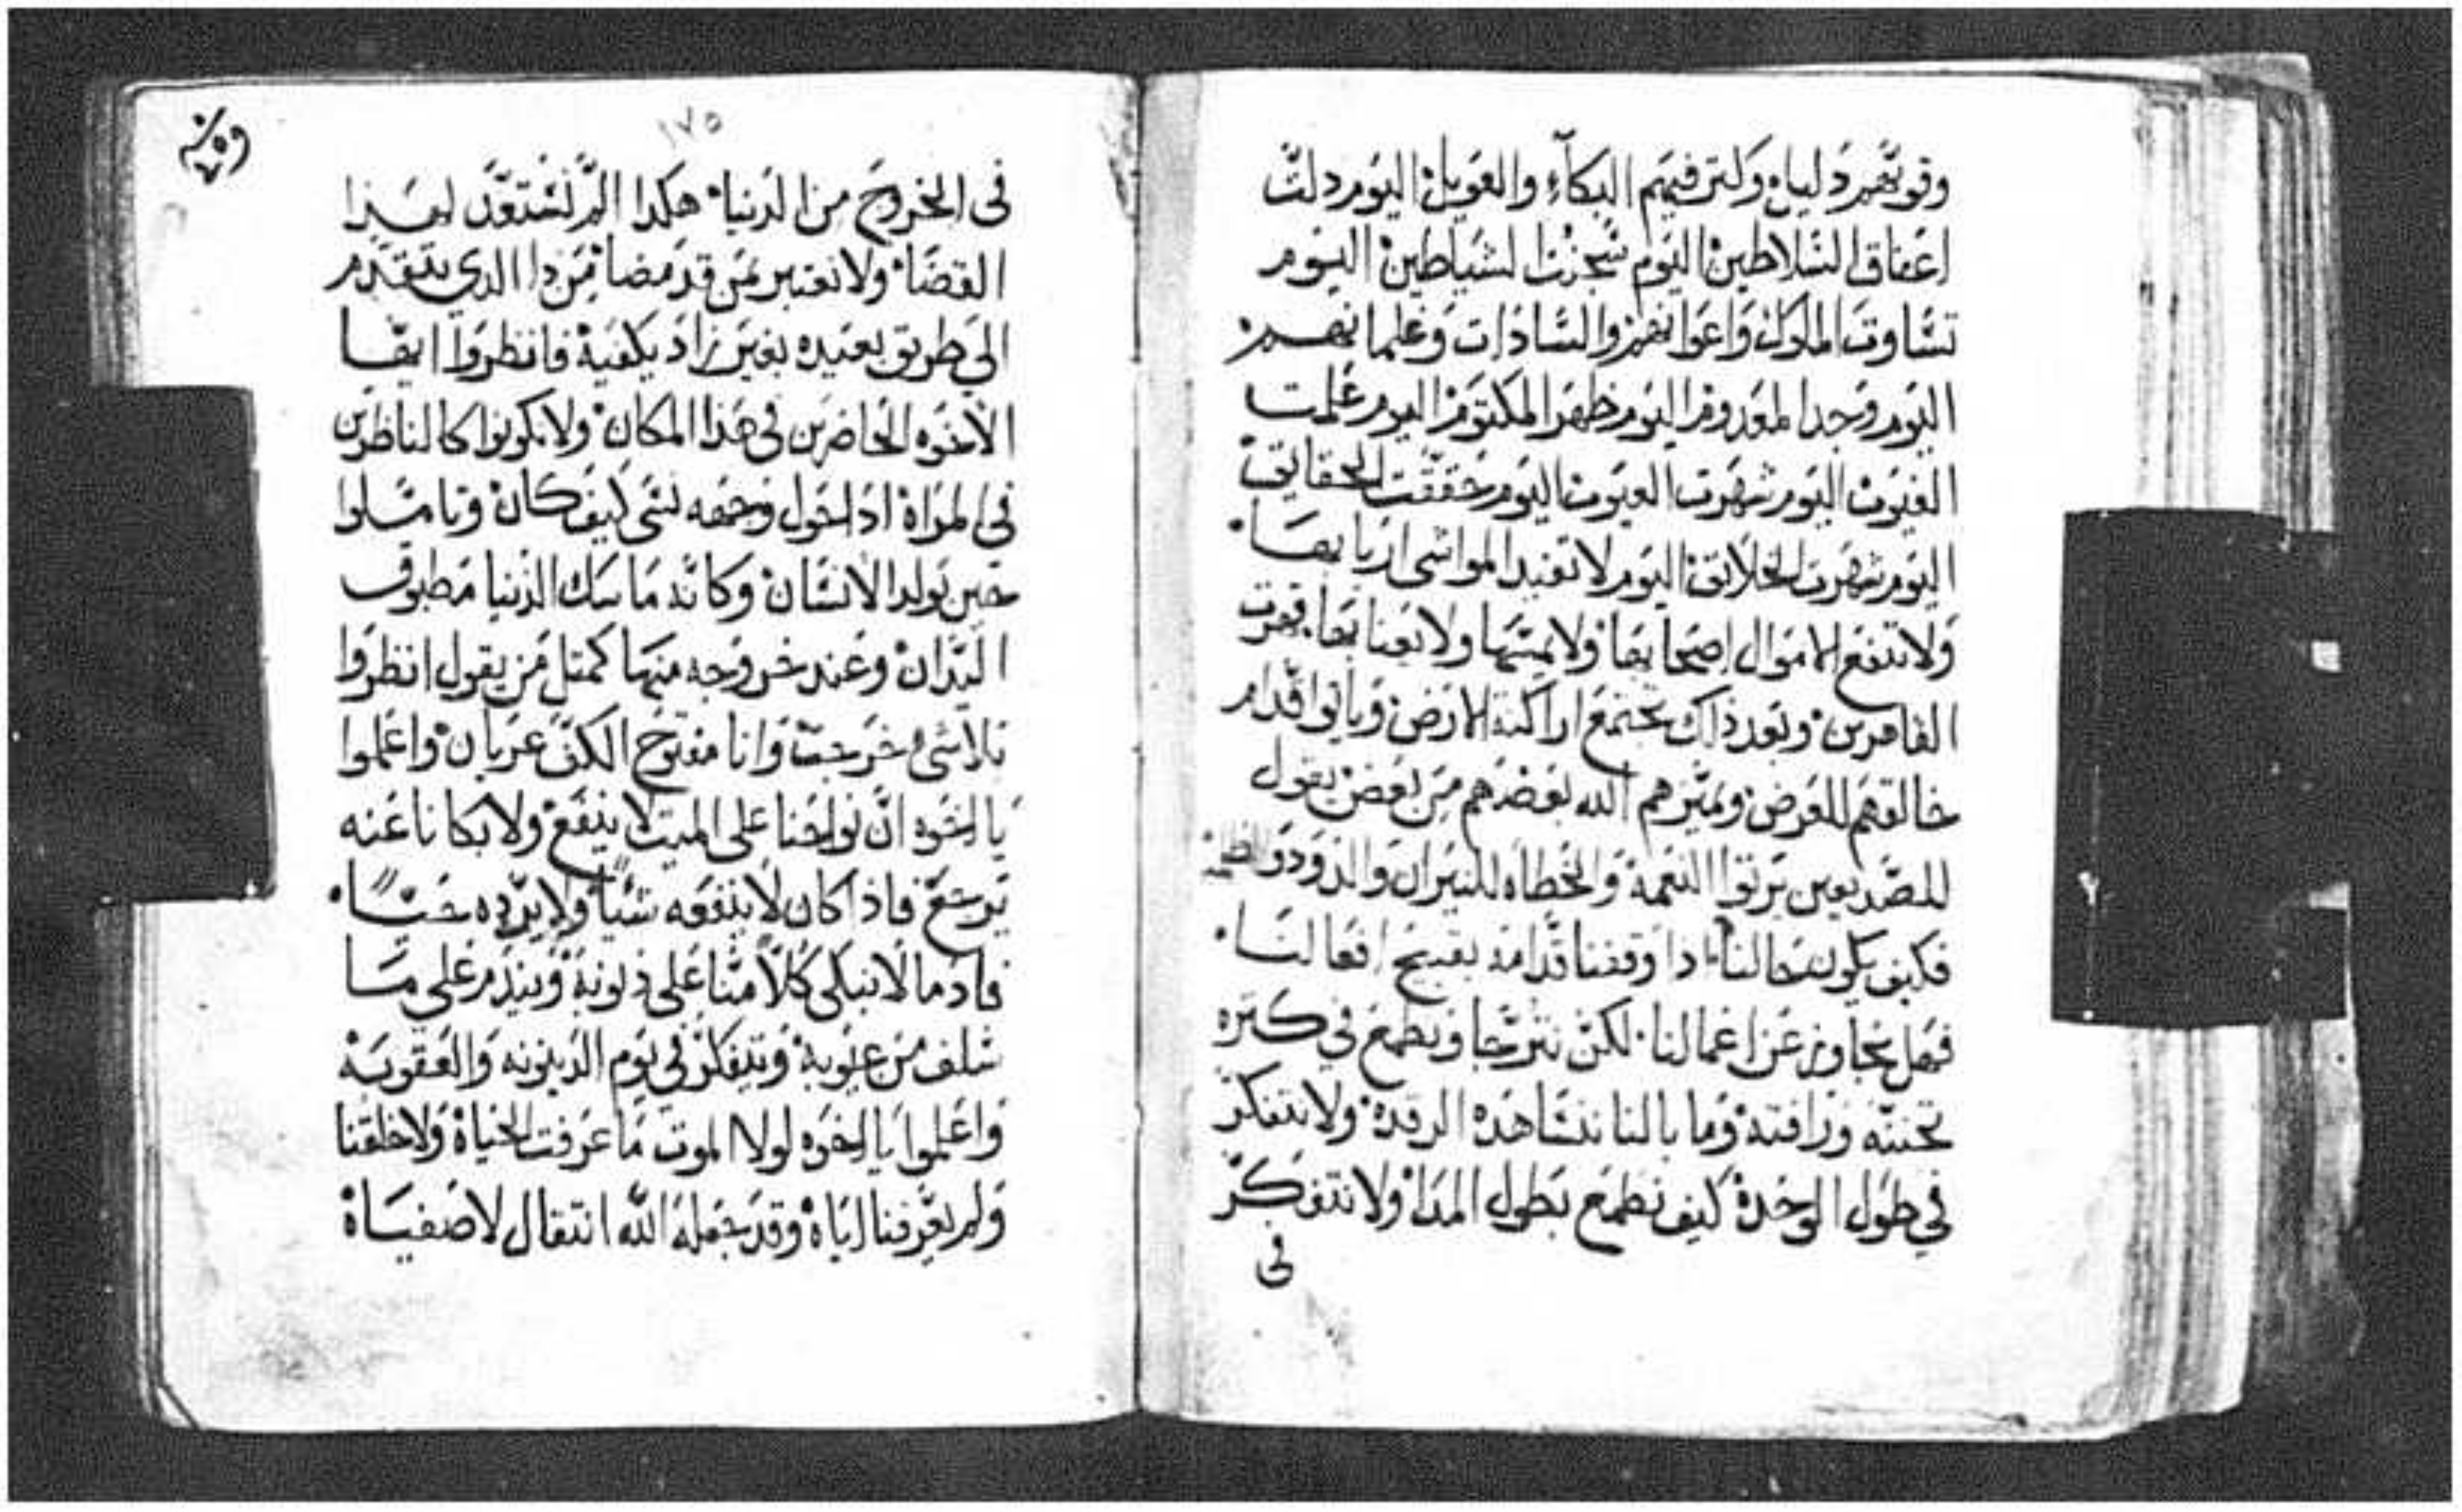 وقوتهم دليله وكثر فيهم البكآء والعويل اليوم دلت
اعناق السلاطين اليوم سجنت الشياطين اليوم
تساوت الملوك واعوانهم والسادات وغلمانهم
اليوم وجد المعدوم اليوم ظهر المكتوم اليوم علمت
الغيوب اليوم شهرت العيوب اليوم حققت الحقايق
اليوم شهرت الخلايق اليوم لا تفيد المواشى اربابها
ولا تنفع الاموال اصحابها ولا يميتها ولا بعنابها قهرت
القاهرين وبعد ذلك تجتمع اراكنة الارض وياتوا قدام
خالقهم للعرض ويميزهم الله بعضهم من بعض يقول
للصديقين يرتوا النعمة والخطاه للنيران والدود
فكيف يكون حالنا ادا وقفنا قدامه بقبيح افعالنا
فهل يتجاوز عن اعمالنا لكن نترجا ونطمع في كتره
تحننه ورافته وما بالنا نشاهد الرقدة ولا نتفكر
في طول الوحدة كيف نطمع بطول المدا ولا نتفكر
فى
١٧٥
فى الخروج من الدنيا هكدا الم نستعد لهذا
القضا ولا نعتبر بمن قد مضا من دا الدي يتقدم
الي طريق بعيده بغير زاد يكفيه فانظروا ايها
الاخوه الحاضرين في هذا المكان ولا تكونوا كالناظرين
في المراة ادا حول وجهه نسى كيف كان وتاملوا
حين يولد الانسان وكانه ماسك الدنيا مطبوق
اليدان وعند خروجه منها كمتل من يقول انظروا
بلا شى خرجت وانا مفتوح الكف عريان واعلموا
يا اخوه ان نواحنا على الميت لا ينفع ولا بكانا عنه
يرجع فاذا كان لا ينفعه شيا ولا يرده حيا
فادما لا نبكى كلا منا على ذنوبه ويندم على ما
سلف من عيوبه ويتفكر في يوم الدينونه والعقوبه
واعلموا يا اخوه لولا الموت ما عرفت الحياة ولا خلقنا
ولم يعرفنا اياه وقد جعله الله انتقال لاصفياه